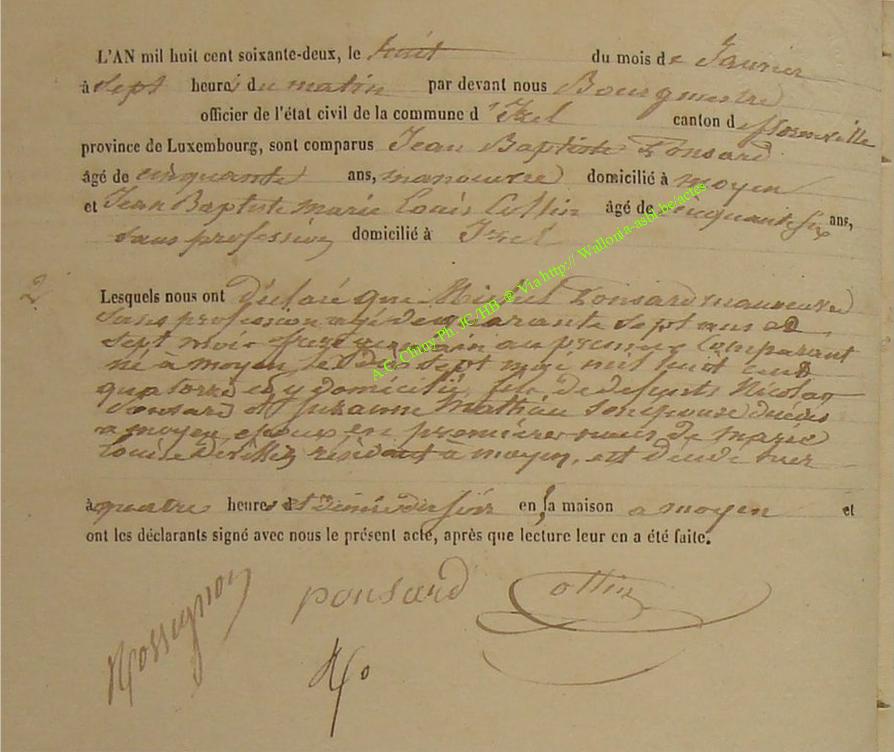 L'AN mil huit cent soixante-deux, le huit du mois de Janvier
à sept heures du matin par devant nous Bourgmestre
officier de l'état civil de la commune d'Izel canton de florenville
province de Luxembourg, sont comparus Jean Baptiste Ponsard
âgé de cinquante ans, manoeuvre domicilié à moyen
et Jean Baptiste marie Louis Collin âgé de cinquante six ans,
sans profession domicilié à Izel
2 Lesquels nous ont Déclaré que Michel Ponsard manoeuvre
sans profession agé de quarante sept ans
sept mois frere germain au premier Comparant
né à moyen le Dix sept mai mil huit cent
quatorze et y domicilié, fils de defunts Nicolas
Ponsard et Suzanne Mathieu son epouse
a moyen epoux en premières noces de marie
Louise résidant à moyen, est décédé hier
à quatre heures et demie du soir en la maison a moyen et
ont les déclarants signé avec nous le présent acte, après que lecture leur en a été faite.
Rossignon ponsard Collin
A.C. Chiny Ph. JC/HB @ Via http:// Wallonia-asbl.be/actes